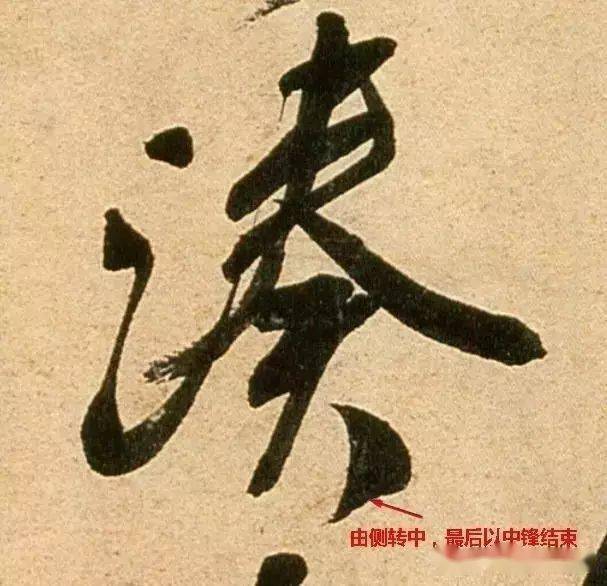 湊
由侧转中，最后以中锋结束